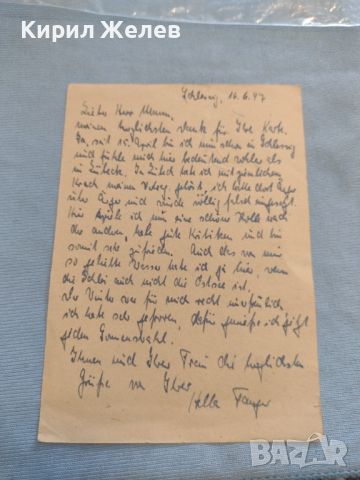 Кирил Желев
Schleswig, 16.6.47
Lieber Herr
meinen herzlichsten Dank für Ihre Karte.
Ja, seit 15. April bin ich nun schon in Schleswig
und fühle mich hier bedeutend wohler als
in Lübeck. In Lübeck habe ich mit ziemlichem
Krach meinen Vertrag gelöst, ich hatte dort Ärger
über Ärger und wurde völlig falsch eingesetzt.
Hier spiele ich nun eine schöne Rolle nach
der anderen, habe gute Kritiken und bin
somit sehr zufrieden. Auch das von mir
so geliebte Wasser habe ich ja hier, wenn
die Schlei auch nicht die Ostsee ist.
Der Winter war für mich recht unerfreulich
ich habe sehr gefroren, dafür genieße ich jetzt
jeden Sonnenstrahl.
Ihnen und Ihrer Frau die herzlichsten
Grüße von Ihrer
Hella
BAZAR
bg